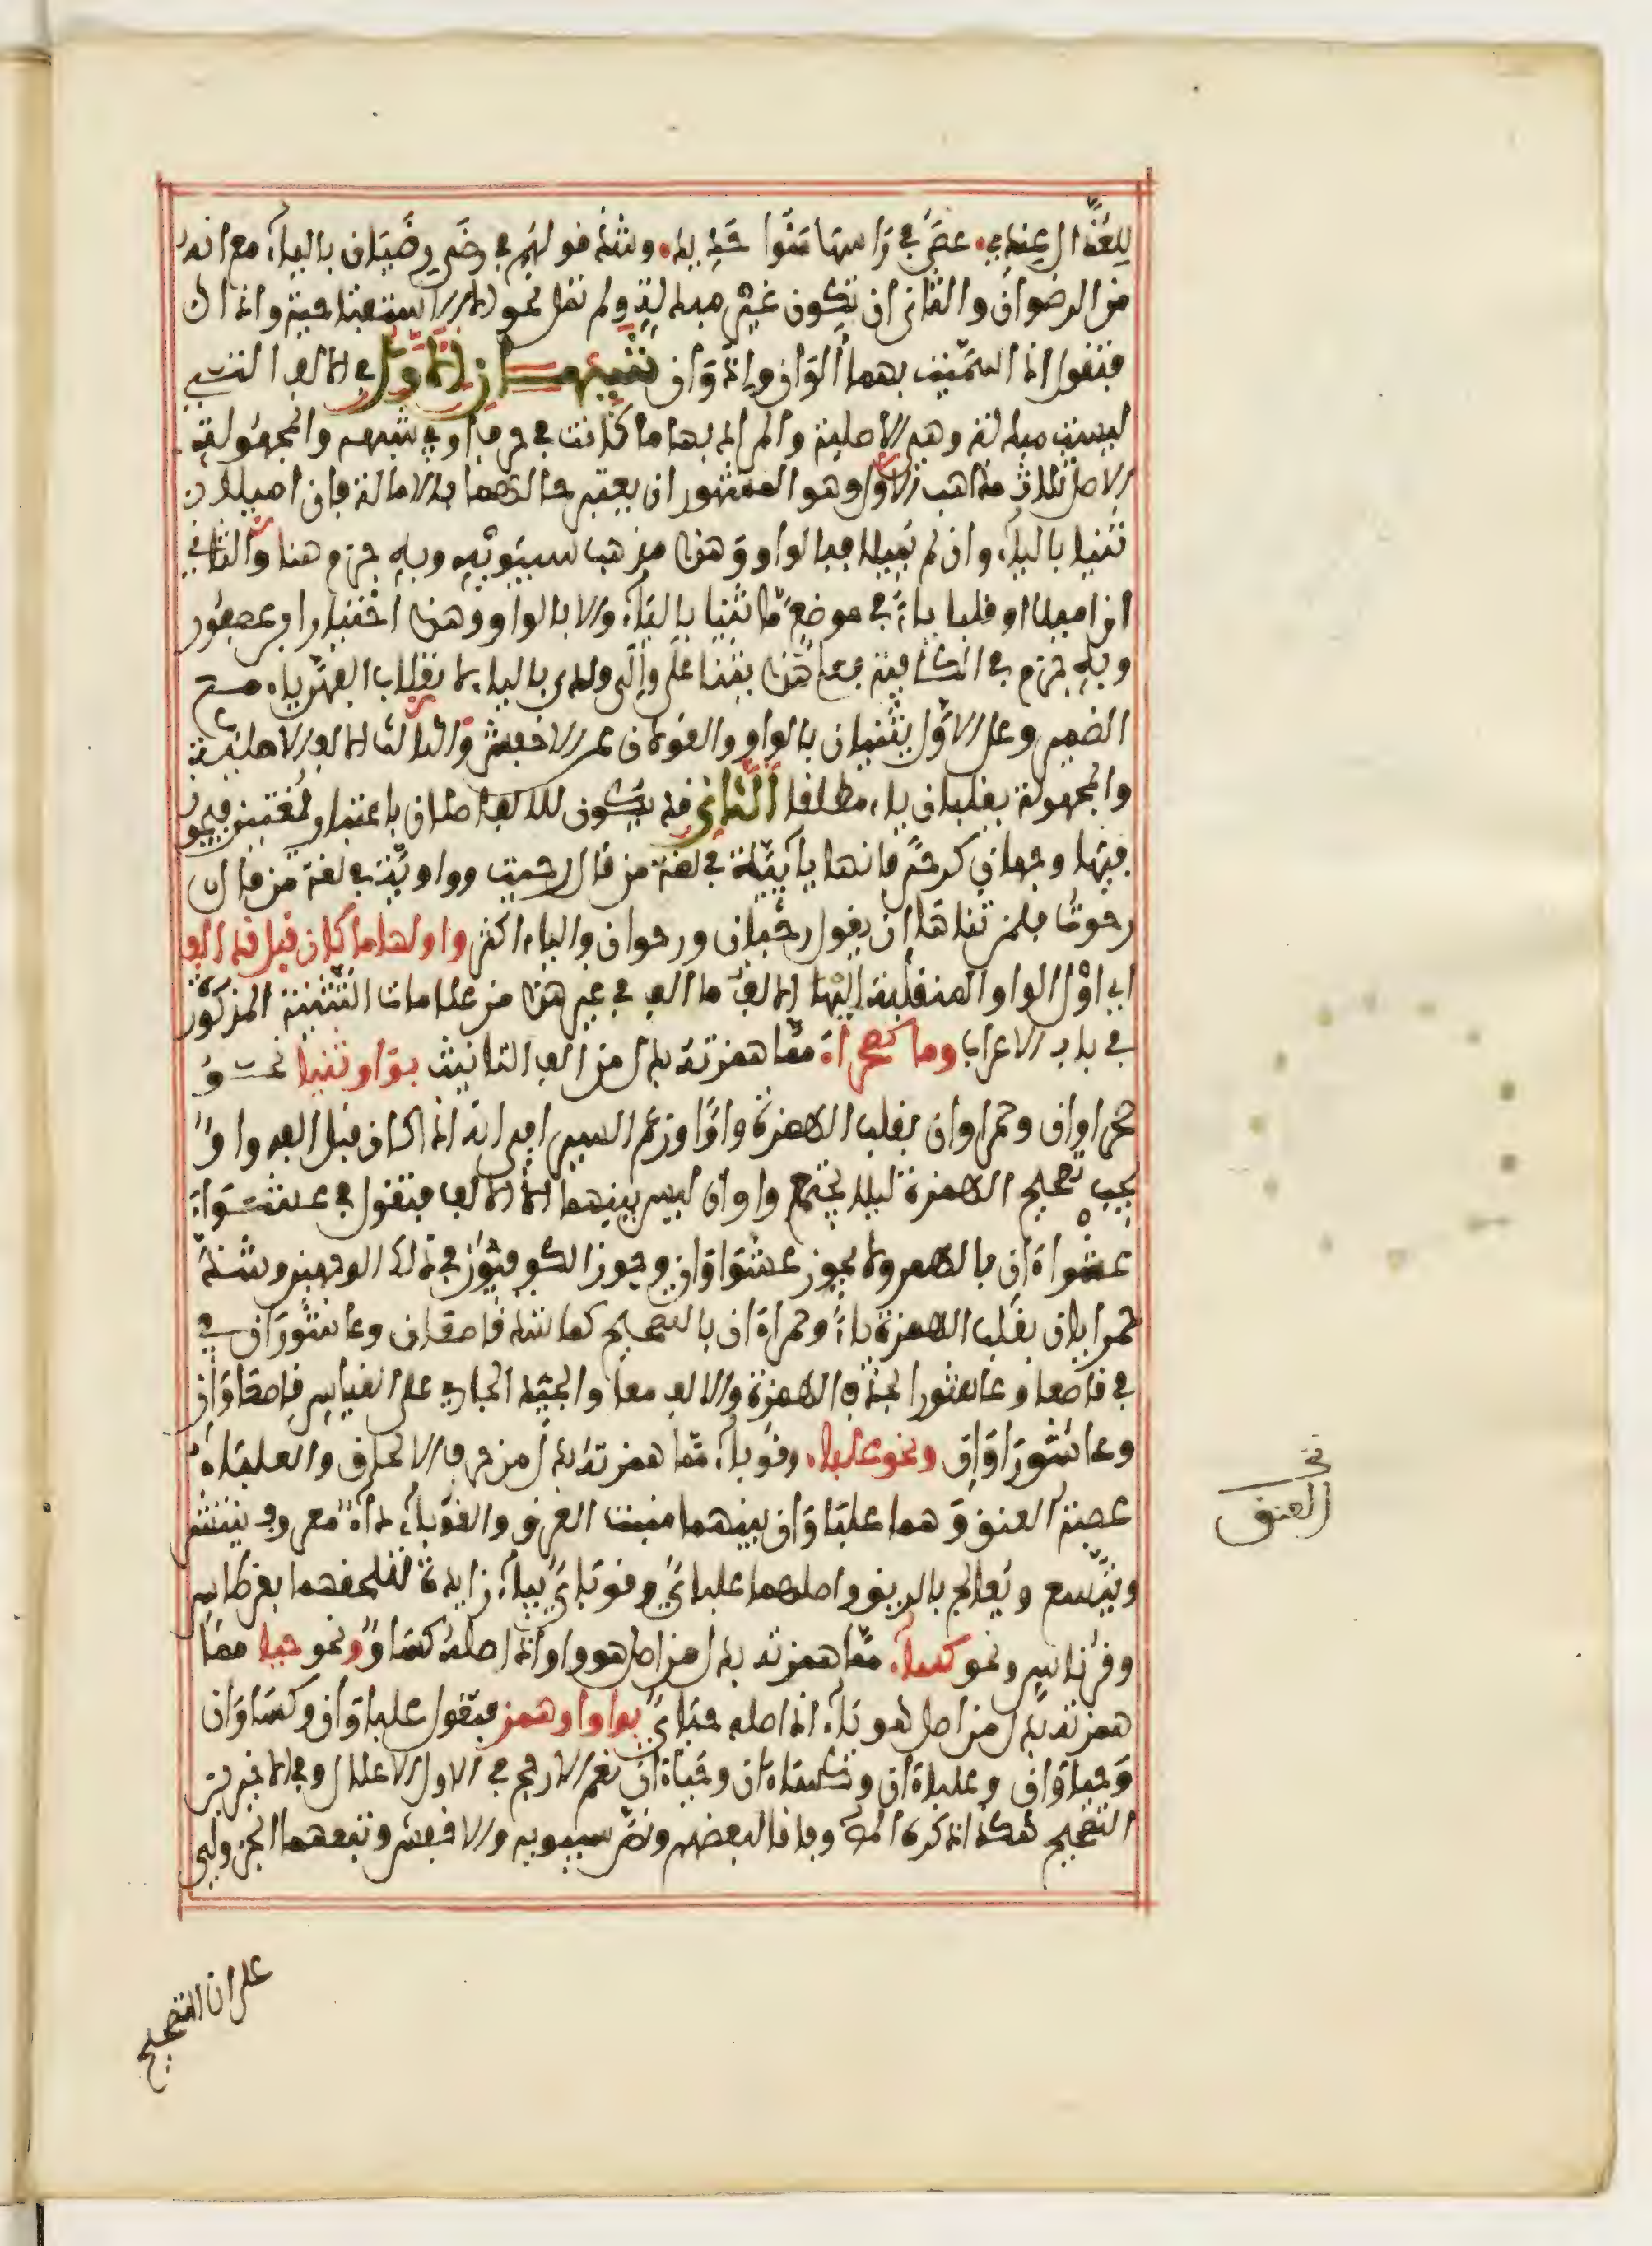 للعبد عندي عصى في راسها منوا حديد وشذ قولهم في رضى رضيان بالياء مع انه
من الرضوان والثاني ان تكون غير مبدلة ولم تمل نحو الا الاستفتاحية واذا
فتقول اذا سميت بهما الوان واذوان تنبيهان الاول في الالف التي
ليست مبدلة وهي الاصلية والمراد بها ما كانت في حرف او شبهه والمجهولة
الاصل ثلاث مذاهب الاول وهو المشهور ان يعتبر حالهما بالامالة فان اميلا
ثنيا بالياء وان لم يميلا فبالواو وهذا مذهب سيبويه وبه جزم هنا والثاني
ان اميلا او قلبا ياء في موضع ما ثنيا بالياء والا بالواو وهذا اختيار ابن عصفور
وبه جزم في الكافية فعلى هذا يثنى على والى ولدى بالياء لانقلاب الفهن ياء مع
الضمير وعلى الاول يثنيان بالواو والقولان عن الاخفش والثالث الالف الاصلية
والمجهولة يقلبان ياء مطلقا الثاني قد يكون للالف اصلان باعتبار لغتين فيجوز
فيها وجهان كرحى فانها يائية في لغة من قال رحيت وواوية في لغة من قال
رحوت فلمن ثناها ان يقول رحيان ورحوان والياء اكثر واولها ما كان قبل قد الف
اي اول الواو المنقلبة اليها الالف ما الف في غير هذا من علامات التثنية المذكورة
في باب الاعراب وما كصحراء مما همزته بدل من الف التانيث بواو ثنيا نحو
صحراوان وحمراوان بقلب الهمزة واوا وزعم السيرافي انه اذا كان قبل الفه واو
يجب تصحيح الهمزة ليلا يجتمع واوان ليس بينهما الا الالف فتقول في عشواء
عشواءان بالهمز ولا يجوز عشواوان وجوز الكوفيون في ذلك الوجهين وشذ
حمرايان بقلب الهمزة ياء وحمراءان بالتصحيح كما شذ قاصعان وعاشوران في
في قاصعا وعاشورا بحذف الهمزة والالف معا والجيد الجاري على القياس قاصعاوان
وعاشوراوان ونحو علباء وقوباء مما همزته بدل من حرف الالحاق والعلباء
عصبة العنق وهما علباوان بينهما منبت العرف والقوباء داء معروف ينتشر
ويتسع ويعالج بالريق واصلهما علباي وقوباي بياء زايدة لتلحقهما بقرطاس
وقرناس ونحو كساء مما همزته بدل من اصل هو واو اذ اصله كساو ونحو حيا مما
همزته بدل من اصل هو ياء اذ اصله حياي بواو او همز فتقول علباوان وكساوان
وحياوان وعلباءان وكساءان وحياءان نعم الارجح في الاول الاعلال وفي الاخيرين
التصحيح هكذا ذكره المص وفاقا لبعضهم ونص سيبويه والاخفش وتبعهما الجزولي
العنق
على ان التصحيح